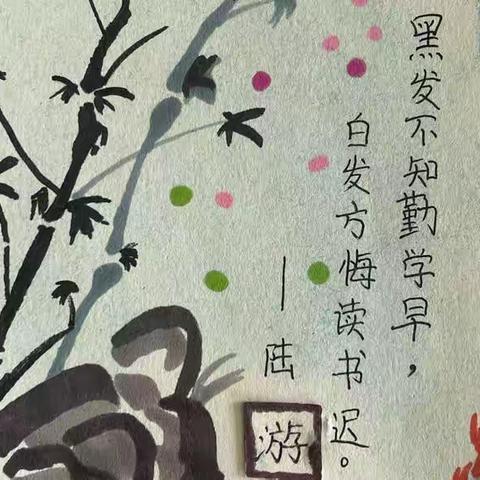 黑发不知勤学早，
白发方悔读书迟。
—陆游